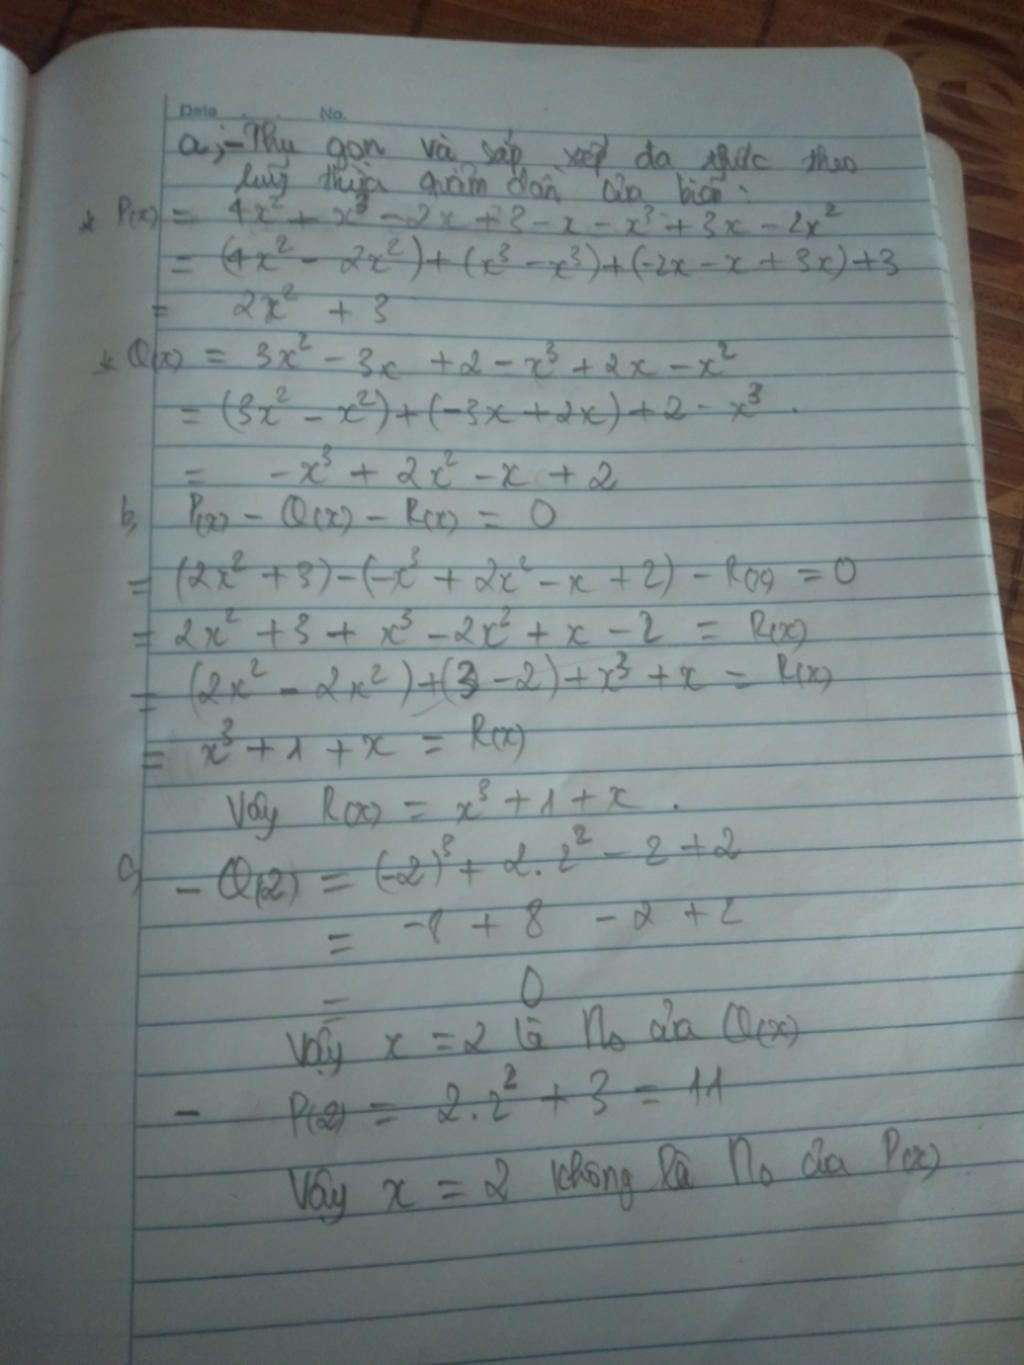 Date No.
a, - Thu gọn và sắp xếp đa thức theo
luỹ thừa giảm dần của biến:
* P(x) = 4x² + x³ - 2x + 3 - x - x³ + 3x - 2x²
= (4x² - 2x²) + (x³ - x³) + (-2x - x + 3x) + 3
= 2x² + 3
* Q(x) = 3x² - 3x + 2 - x³ + 2x - x²
= (3x² - x²) + (-3x + 2x) + 2 - x³.
= -x³ + 2x² - x + 2
b, P(x) - Q(x) - R(x) = 0
= (2x² + 3) - (-x³ + 2x² - x + 2) - R(x) = 0
= 2x² + 3 + x³ - 2x² + x - 2 = R(x)
= (2x² - 2x²) + (3 - 2) + x³ + x = R(x)
= x³ + 1 + x = R(x)
Vậy R(x) = x³ + 1 + x.
c, - Q(2) = (-2)³ + 2.2² - 2 + 2
= -8 + 8 - 2 + 2
= 0
Vậy x = 2 là No của Q(x)
- P(2) = 2.2² + 3 = 11
Vậy x = 2 không là No của P(x)